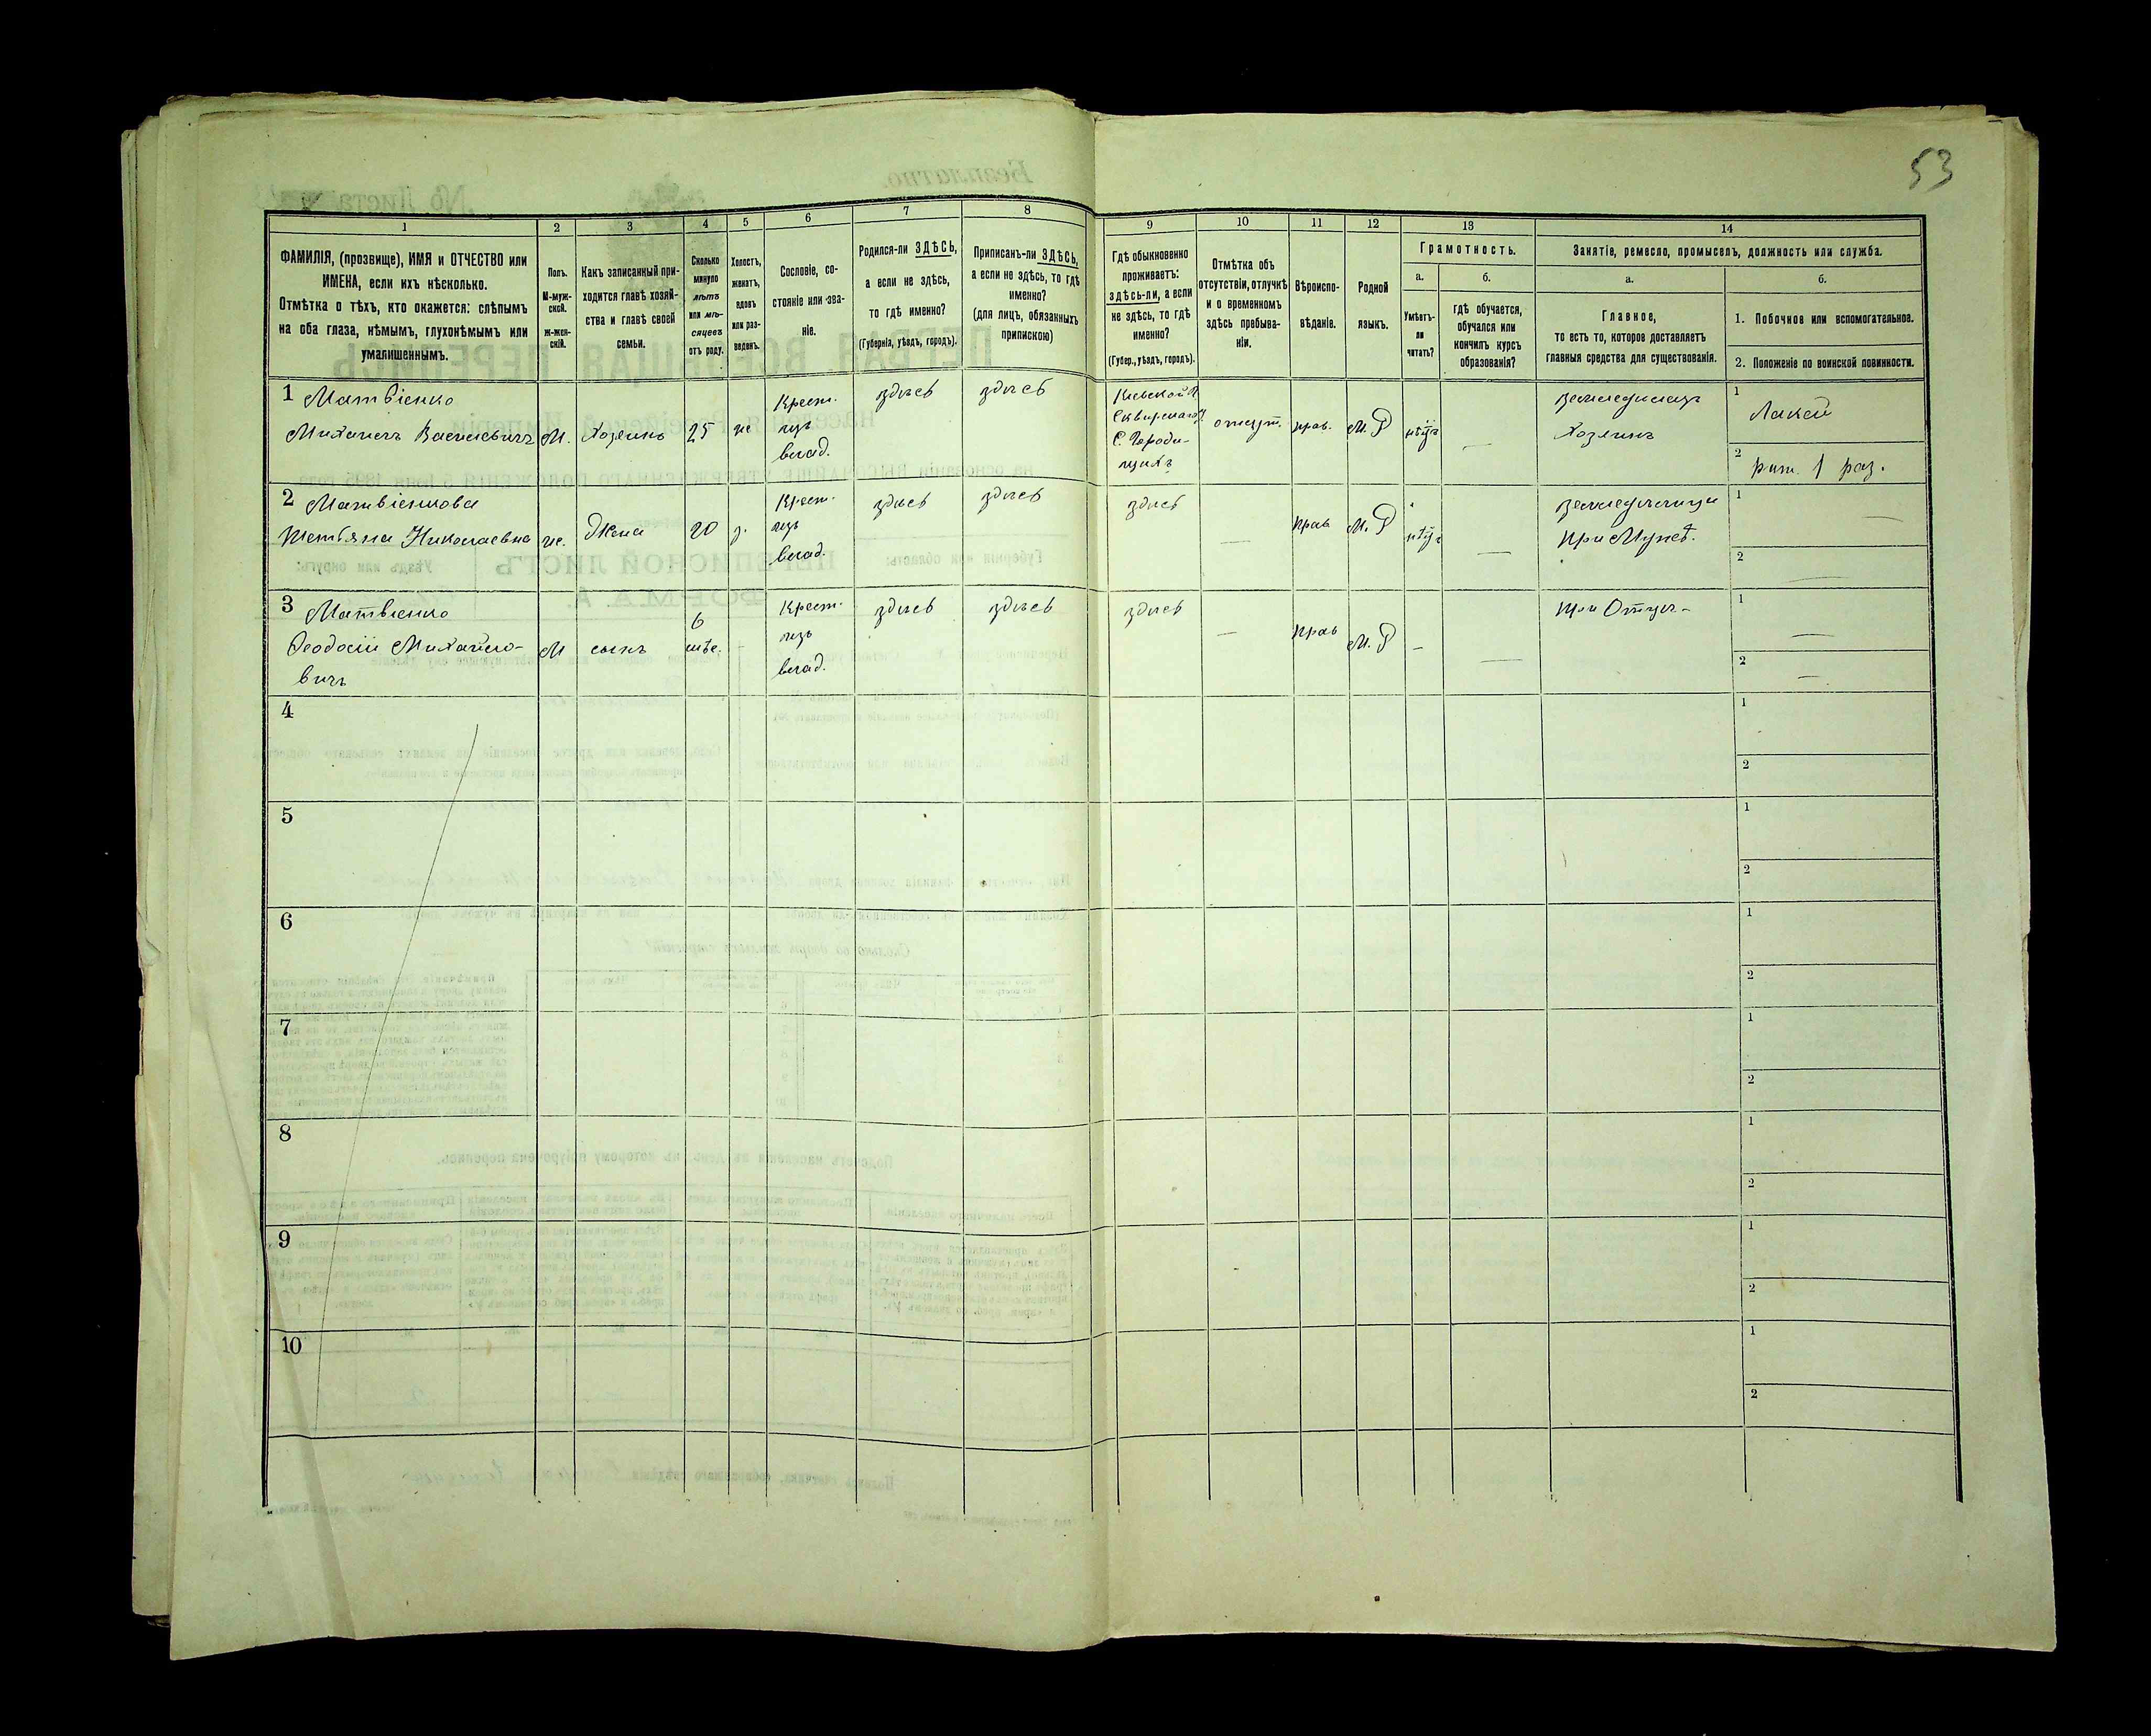 53
1 2 3 4 5 6 7 8 9 10 11 12 13 14
ФАМИЛІЯ, (прозвище), ИМЯ и ОТЧЕСТВО или
ИМЕНА, если ихъ нѣсколько.
Отмѣтка о тѣхъ, кто окажется: слѣпымъ
на оба глаза, нѣмымъ, глухонѣмымъ или
умалишеннымъ.
Полъ.
М-муж-
ской.
ж-жен-
скій.
Какъ записанный при-
ходится главѣ хозяй-
ства и главѣ своей
семьи.
Сколько
минуло
лѣтъ
или мѣ-
сяцевъ
отъ роду.
Холостъ,
женатъ,
вдовъ
или раз-
веденъ.
Сословіе, со-
стояніе или зва-
ніе.
Родился-ли ЗДѢСЬ,
а если не здѣсь,
то гдѣ именно?
(Губернія, уѣздъ, городъ).
Приписанъ-ли ЗДѢСЬ,
а если не здѣсь, то гдѣ
именно?
(для лицъ, обязанныхъ
припискою)
Гдѣ обыкновенно
проживаетъ:
здѣсь-ли, а если
не здѣсь, то гдѣ
именно?
(Губер., уѣздъ, городъ).
Отмѣтка объ
отсутствіи, отлучкѣ
и о временномъ
здѣсь пребыва-
ніи.
Вѣроиспо-
вѣданіе.
Родной
языкъ.
Грамотность.
а.
Умѣетъ-
ли
читать?
б.
гдѣ обучается,
обучался или
кончилъ курсъ
образованія?
Занятіе, ремесло, промыселъ, должность или служба.
а.
Главное,
то есть то, которое доставляетъ
главныя средства для существованія.
б.
1. Побочное или вспомогательное.
2. Положеніе по воинской повинности.
1 Матвіенко
Михаилъ Василевичъ
М.
Хозяинъ
25
ж
Крест.
изъ
влад.
здѣсь
здѣсь
Кіевской
Сквирскаго
С. Городи-
щахъ
отсут.
прав.
М. Р
нѣтъ
—
Хозяинъ
1
Лакей
2
рат. 1 раз.
2 Матвіенкова
Тетьяна Николаевна
же.
Жена
20
з.
Крест.
изъ
влад.
здѣсь
здѣсь
здѣсь
—
прав
М. Р
нѣтъ
—
При Мужѣ.
1
—
2
—
3 Матвіенко
Феодосій Михайло-
вичъ
М
сынъ
6
мѣс.
-
Крест.
изъ
влад.
здѣсь
здѣсь
здѣсь
—
прав
М. Р
-
—
При Отцѣ -
1
—
2
—
4
1
2
5
1
2
6
1
2
7
1
2
8
1
2
9
1
2
10
1
2